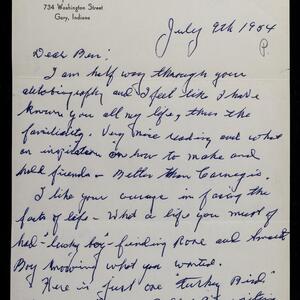 734 Washington Street
Gary, Indiana
July 9th 1954
P.
Dear Ben:
I am half way through your
autobiography and I feel like I have
known you all my life, thus the
familiarity. Very nice reading and what
an inspiration on how to make and
hold friends - Better than Carnegie.
I like your courage in facing the
facts of life - What a life you must of
had - "lucky boy" - finding Rose and
Boy knowing what you wanted.
Here is just one "Turkey Bird"